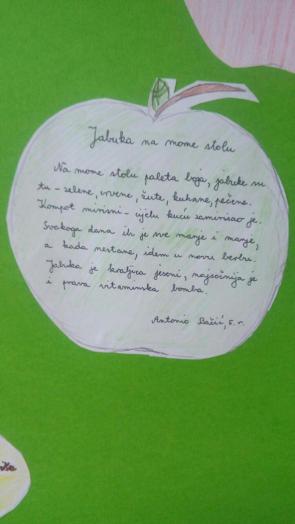 Jabuka na mome stolu
Na mome stolu paleta boja, jabuke su
tu - zelene, crvene, žute, kuhane, pečene.
Kompot mirisni - cijelu kuću zamirisao je.
Svakoga dana ih je sve manje i manje,
a kada nestane, idem u nove berbe.
Jabuka je kraljica jeseni, najsočnija je
i prava vitaminska bomba.
Antonio Bačić, 5. r.